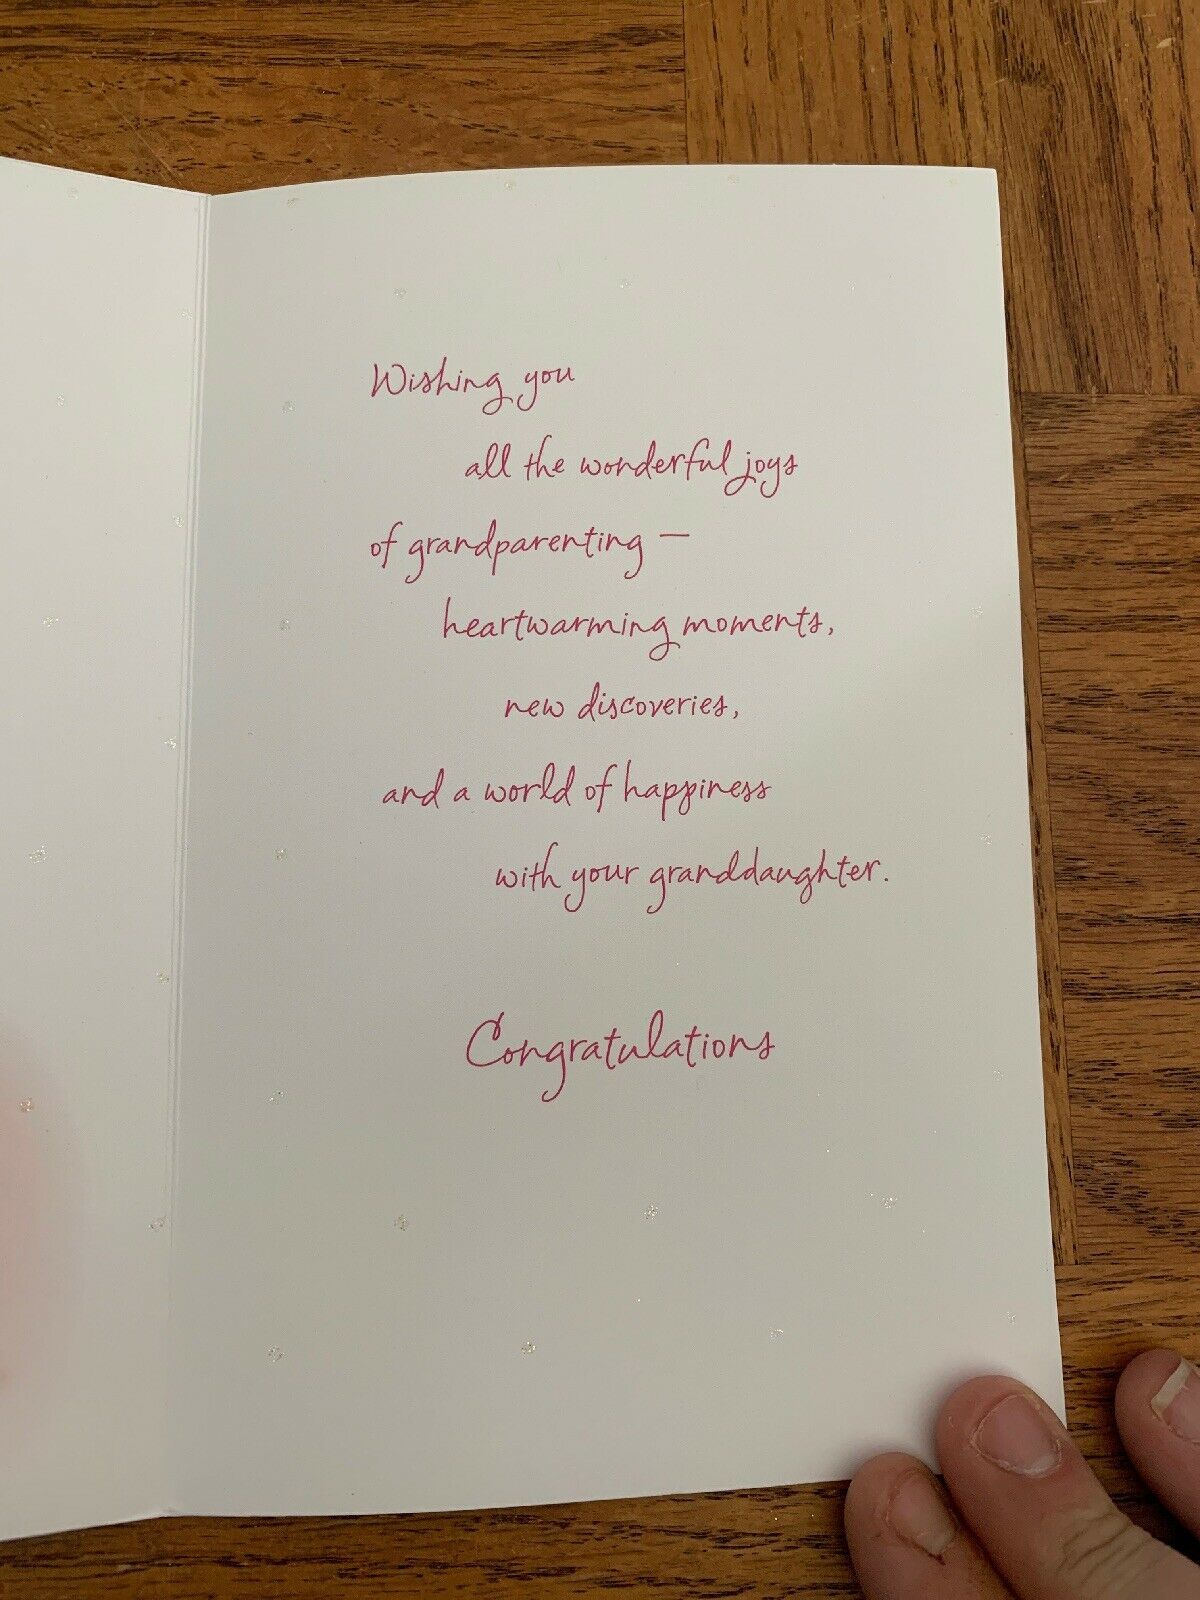 Wishing you
all the wonderful joys
of grandparenting —
heartwarming moments,
new discoveries,
and a world of happiness
with your granddaughter.
Congratulations